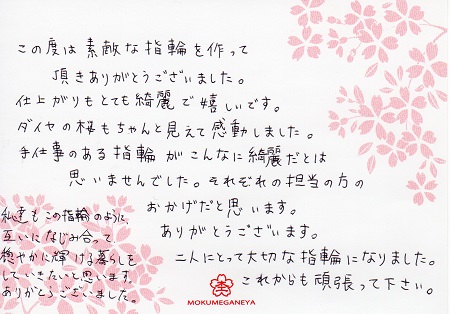 この度は素敵な指輪を作って
頂きありがとうございました。
仕上がりもとても綺麗で嬉しいです。
ダイヤの桜もちゃんと見えて感動しました。
手仕事のある指輪がこんなに綺麗だとは
思いませんでした。それぞれの担当の方の
おかげだと思います。
ありがとうございます。
二人にとって大切な指輪になりました。
これからも頑張って下さい。
私達もこの指輪のように、
互いになじみ合って
穏やかに輝ける暮らしを
していきたいと思います。
ありがとうございました。
MOKUMEGANEYA